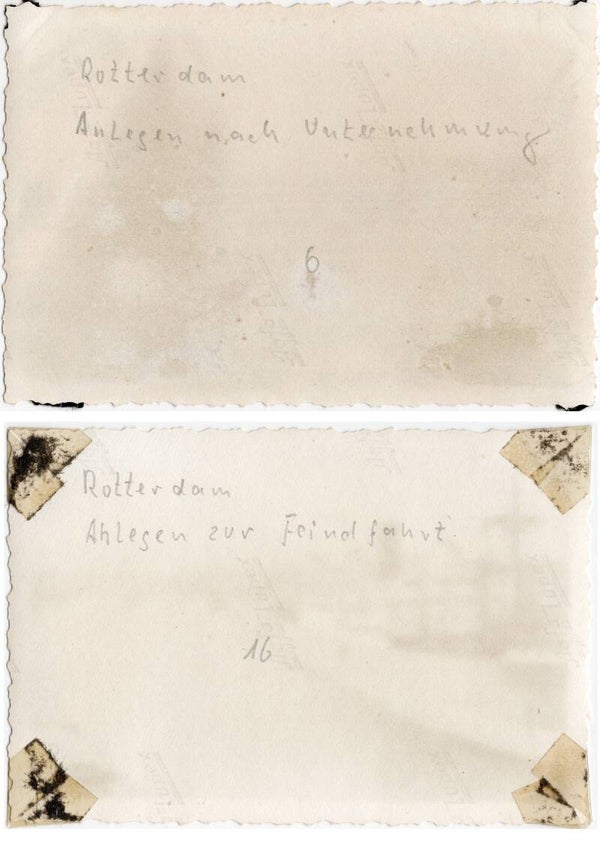 Rotterdam
Anlegen nach Unternehmung
6
Rotterdam
Ablegen zur Feindfahrt
16